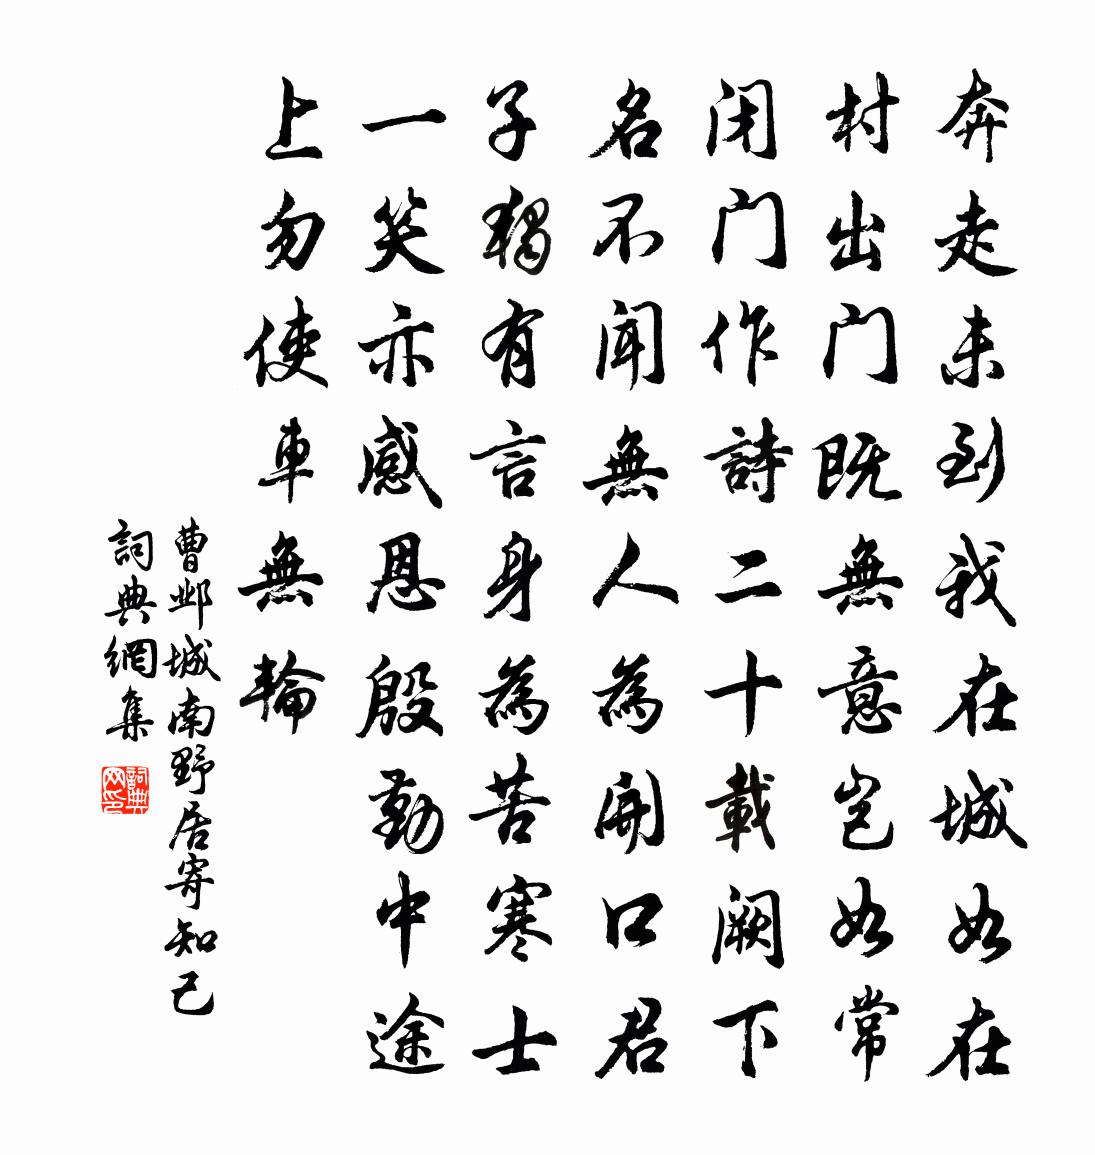 奔走未到我在城如在
村出门既無意豈如常
闭门作詩二十載阙下
名不闻無人為開口君
子獨有言身為苦寒士
一笑亦感恩殷勤中途
上勿使車無輪
曹邺城南野居寄知己
詞典網集
詞典
网印